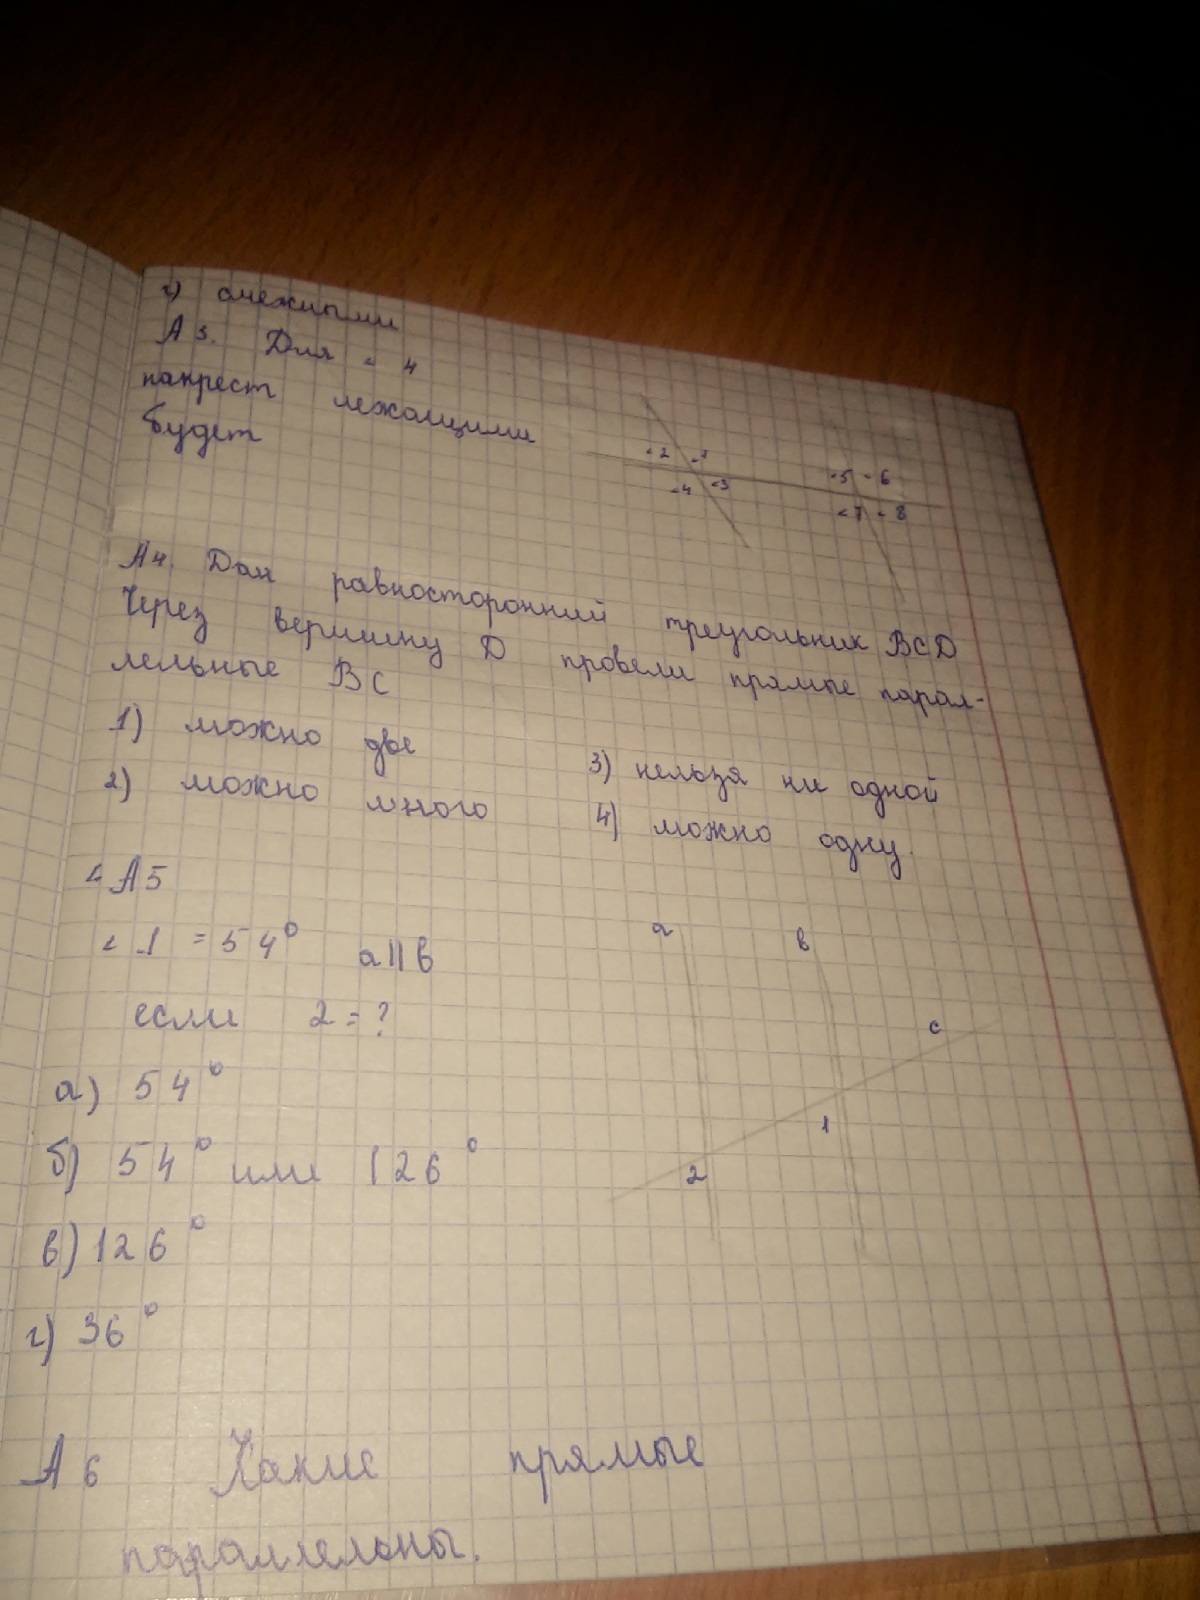 г) смежными
А 3. Для < 4
накрест лежащими
будет
<2 <1
<4 <3
<5 <6
<7 <8
А4. Дан равносторонний треугольник ВСD
Через вершину D провели прямые парал-
лельные ВС
1) можно две
2) можно много
3) нельзя ни одной
4) можно одну.
< А5
< 1 = 54° а||в
если 2 = ?
а) 54°
б) 54° или 126°
в) 126°
г) 36°
а в
с
1
2
А 6 Какие прямые
параллельны.